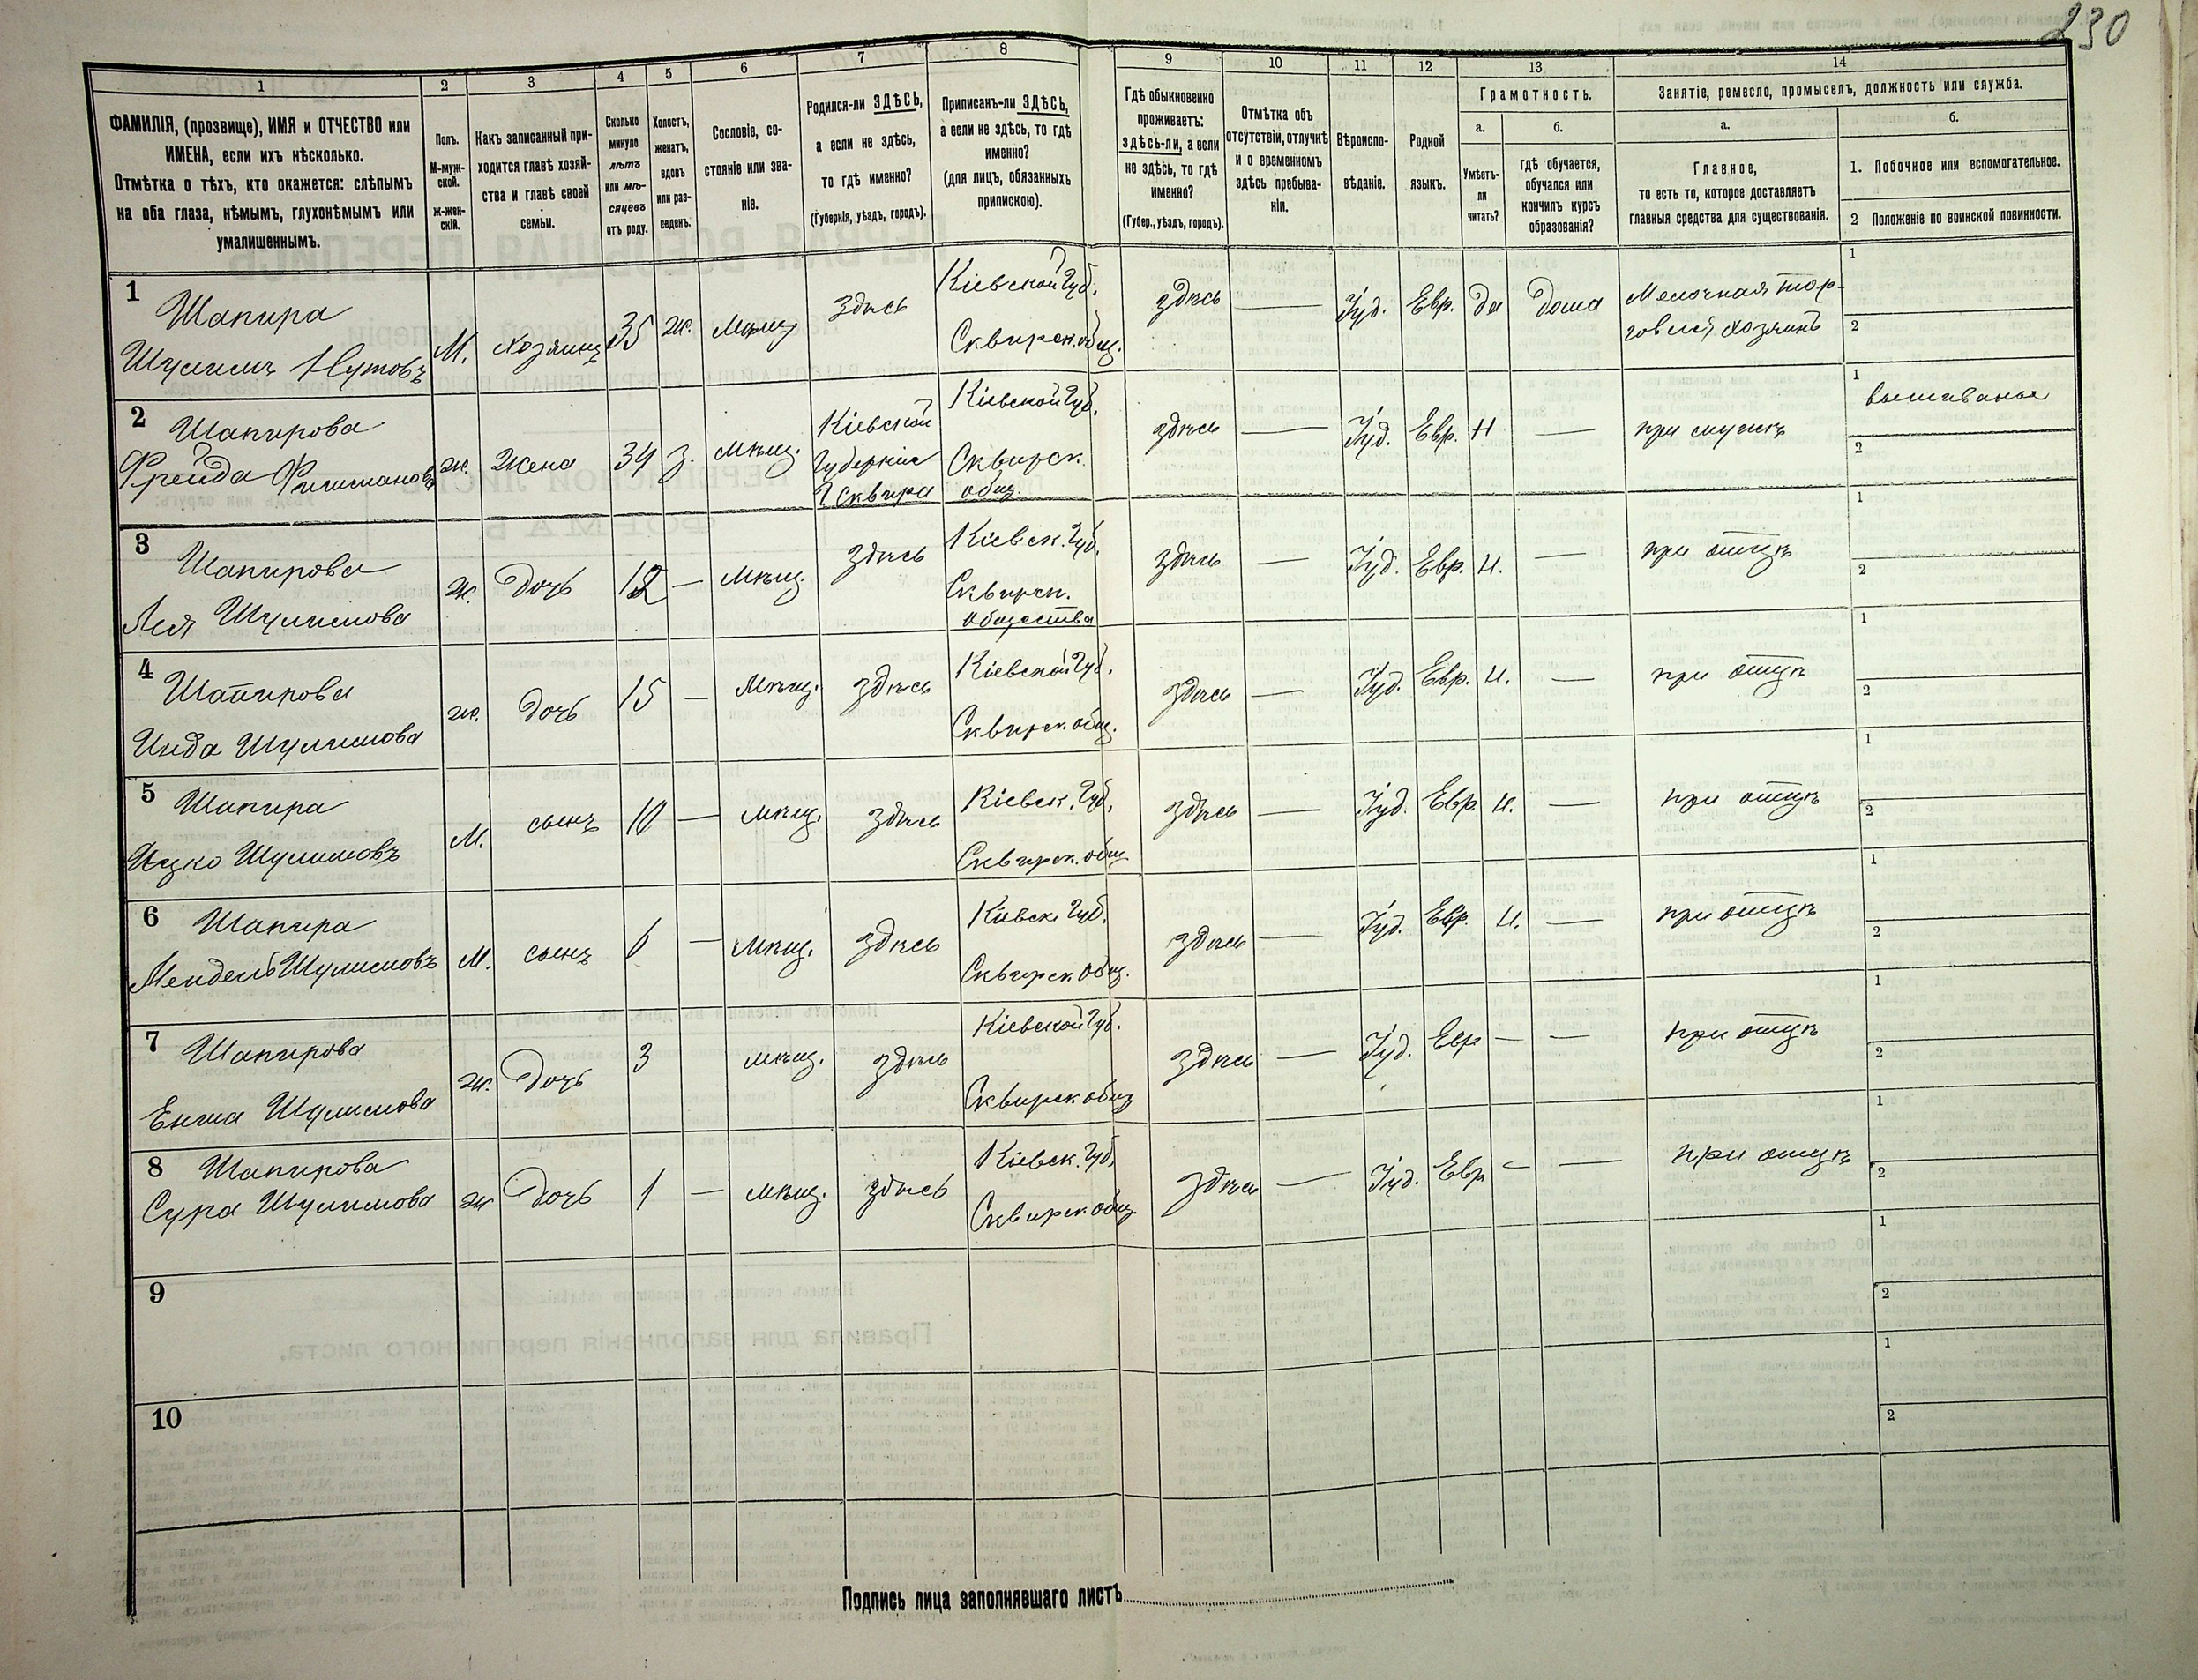 230
1
2
3
4
5
6
7
8
9
10
11
12
13
14
ФАМИЛІЯ, (прозвище), ИМЯ и ОТЧЕСТВО или
ИМЕНА, если ихъ нѣсколько.
Отмѣтка о тѣхъ, кто окажется: слѣпымъ
на оба глаза, нѣмымъ, глухонѣмымъ или
умалишеннымъ.
Полъ.
М-муж-
ской.
ж-жен-
скій.
Какъ записанный при-
ходится главѣ хозяй-
ства и главѣ своей
семьи.
Сколько
минуло
лѣтъ
или мѣ-
сяцевъ
отъ роду.
Холостъ,
женатъ,
вдовъ
или раз-
веденъ.
Сословіе, со-
стояніе или зва-
ніе.
Родился-ли ЗДѢСЬ,
а если не здѣсь,
то гдѣ именно?
(Губернія, уѣздъ, городъ).
Приписанъ-ли ЗДѢСЬ,
а если не здѣсь, то гдѣ
именно?
(для лицъ, обязанныхъ
припискою).
Гдѣ обыкновенно
проживаетъ:
здѣсь-ли, а если
не здѣсь, то гдѣ
именно?
(Губер., уѣздъ, городъ).
Отмѣтка объ
отсутствіи, отлучкѣ
и о временномъ
здѣсь пребыва-
ніи.
Вѣроиспо-
вѣданіе.
Родной
языкъ.
Грамотность.
а.
Умѣетъ-
ли
читать?
б.
гдѣ обучается,
обучался или
кончилъ курсъ
образованія?
Занятіе, ремесло, промыселъ, должность или служба.
а.
Главное,
то есть то, которое доставляетъ
главныя средства для существованія.
б.
1. Побочное или вспомогательное.
2 Положеніе по воинской повинности.
1
Шапира
Шулимъ Нутовъ
М.
хозяинъ
35
ж.
Мѣщ
здѣсь
Кіевской Губ.
Сквирск. общ.
здѣсь
—
Іуд.
Евр.
да
дома
Мелочная тор-
говля хозяинъ
1
2
2
Шапирова
Фрейда
ж.
Жена
34
з.
Мѣщ.
Кіевской
Губерніи
Г. Сквира
Кіевской Губ.
Сквирск.
общ.
здѣсь
—
Іуд.
Евр.
Н
—
при мужѣ
1
вышиванье
2
3
Шапирова
Лея Шулимова
ж.
Дочь
12
—
Мѣщ.
здѣсь
Кіевск. Губ.
Сквирск.
общества
здѣсь
—
Іуд.
Евр.
Н.
—
при отцѣ
1
2
4
Шапирова
Инда Шулимова
ж.
дочь
15
—
Мѣщ.
здѣсь
Кіевской Губ.
Сквирск. общ.
здѣсь
—
Іуд.
Евр.
Н.
—
при отцѣ
1
2
5
Шапира
Ицко Шулимовъ
М.
сынъ
10
—
мѣщ.
здѣсь
Кіевск. Губ.
Сквирск. общ
здѣсь
—
Іуд.
Евр.
Н.
—
при отцѣ
1
2
6
Шапира
Мендель Шулимовъ
М.
сынъ
6
—
Мѣщ.
здѣсь
Кіевск. Губ.
Сквирск. общ.
здѣсь
—
Іуд.
Евр.
Н.
—
при отцѣ
1
2
7
Шапирова
Шулимова
ж.
Дочь
3
мѣщ.
здѣсь
Кіевской Губ.
Сквирск общ
здѣсь
—
Іуд.
Евр
—
—
при отцѣ
1
2
8
Шапирова
Сура Шулимова
ж
Дочь
1
—
мѣщ.
здѣсь
Кіевск. Губ.
Сквирск общ
здѣсь
—
Іуд.
Евр
—
—
при отцѣ
1
2
9
1
2
10
1
2
Подпись лица заполнявшаго листъ